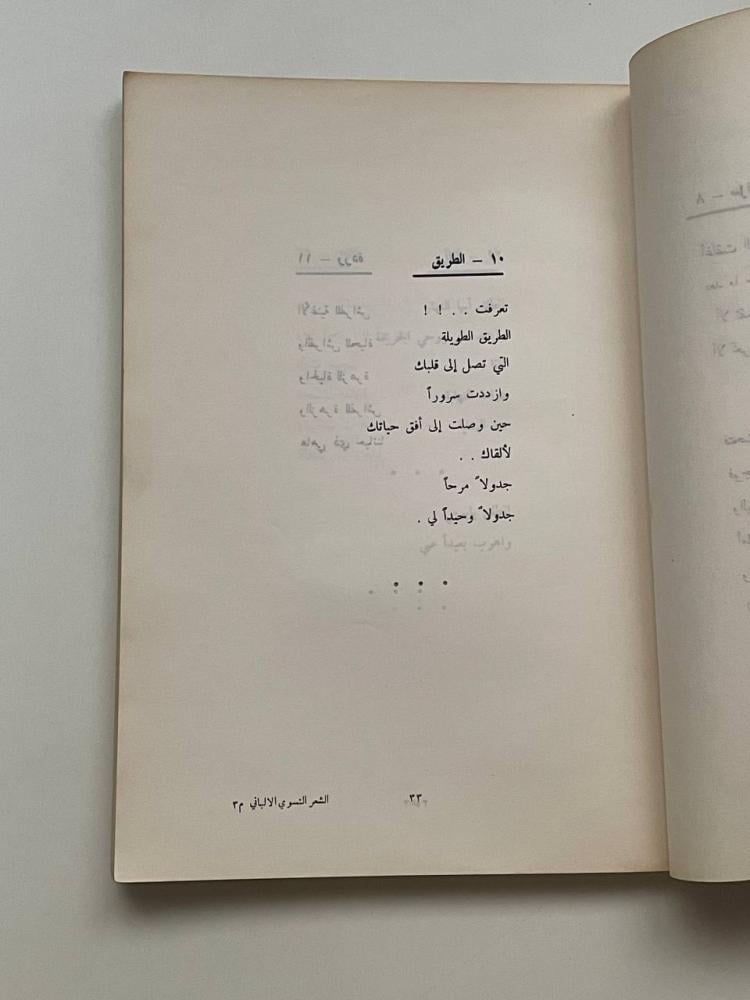 ١٠ – الطريق
تعرفت . . ! !
الطريق الطويلة
التي تصل إلى قلبك
وازددت سروراً
حين وصلت إلى أفق حياتك
لألقاك . .
جدولاً مرحاً
جدولاً وحيداً لي .
٣٣
الشعر النسوي الالباني م٣